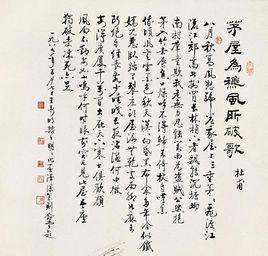 茅屋為龝風所破歌
杜甫
八月秋高風怒號卷我屋上三重茅茅飛渡江
洒江郊高者掛罥長林梢下者飄轉沉塘坳
南村群童欺我老無力忍能對面為盜賊公然抱
茅入竹去唇焦口燥呼不得歸來倚杖自嘆息
俄頃風定雲墨色秋天漠漠向昏黑布衾多年冷似鐵
嬌兒惡臥踏裏裂床頭屋漏無乾處雨腳如麻未
斷絕自經喪亂少睡眠長夜沾濕何由徹
安得廣廈千萬間大庇天下寒士俱歡顏
風雨不動安如山嗚呼何時眼前突兀見此屋吾廬
獨破受凍死亦足
一九八